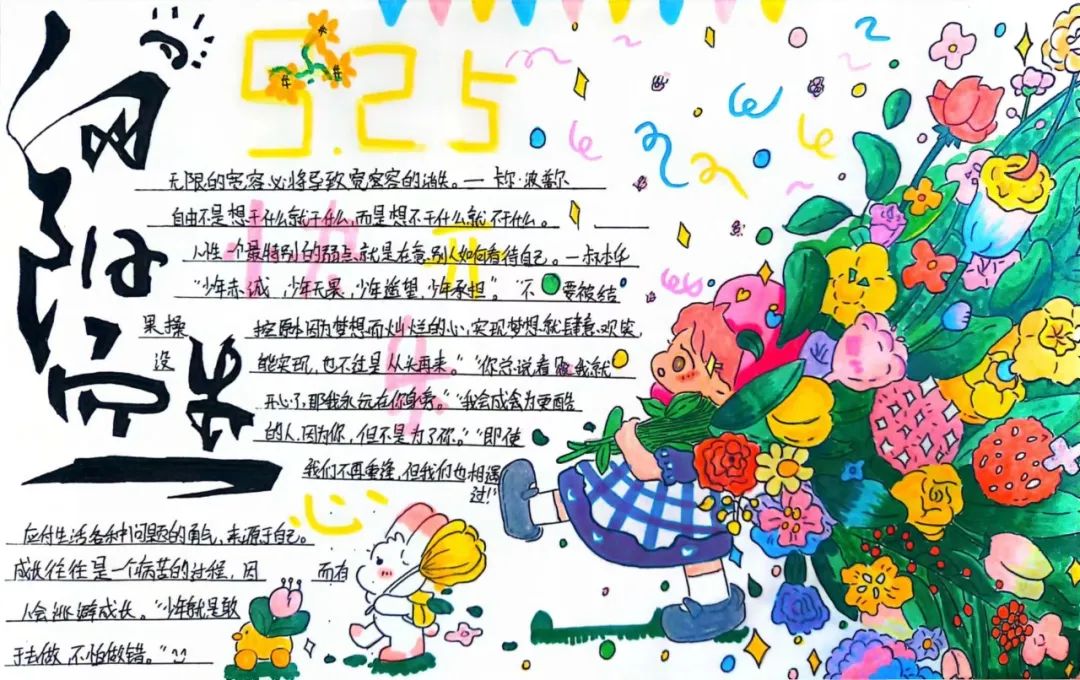 5.25
无限的宽容必将导致宽容的消失。— 卡尔·波普尔
自由不是想干什么就干什么,而是想不干什么就不干什么。
人性一个最特别的弱点,就是在意别人如何看待自己。—叔本华
“少年赤诚,少年无畏,少年遥望,少年承担”。“不要被结
果操控原本因为梦想而灿烂的心,实现梦想就肆意欢笑,
没能实现,也不过是从头再来。”“你总说看见我就
开心了,那我永远在你身旁。”“我会成为更酷
的人,因为你,但不是为了你。”“即使
我们不再重逢,但我们也相遇
过!”
应付生活各种问题的勇气,来源于自己。
成长往往是一个痛苦的过程,因而有
人会逃避成长。“少年就是敢
于去做,不怕做错。”
心